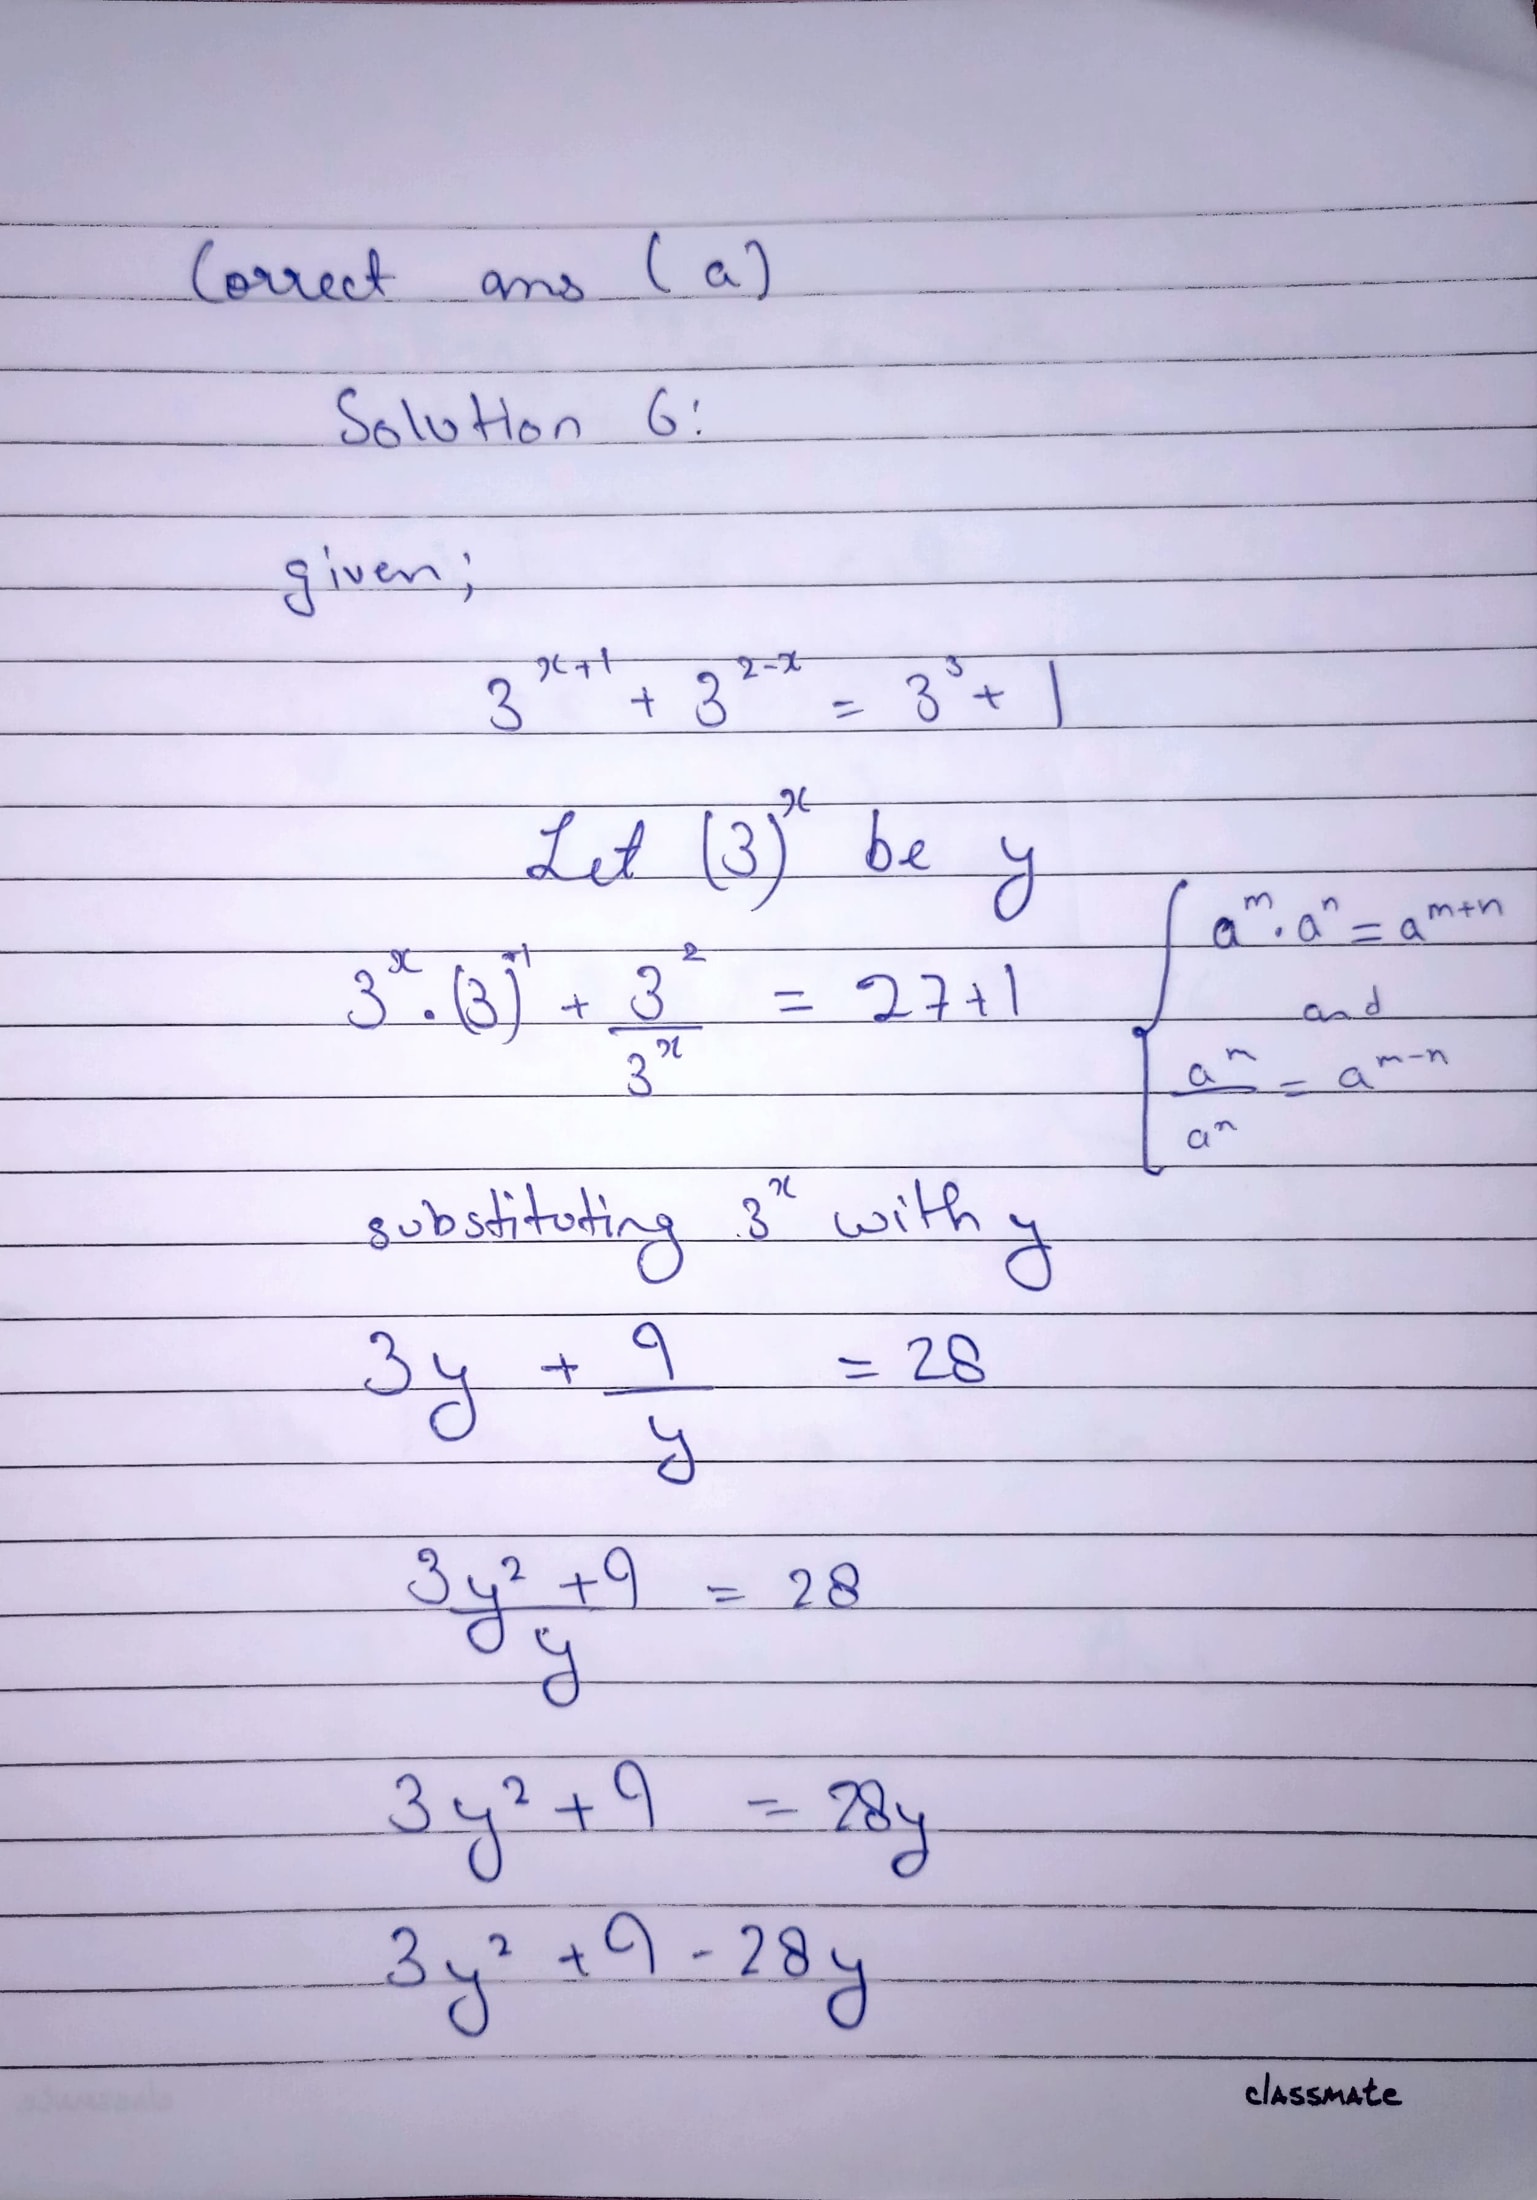 Correct ans (a)
Solution 6:
given;
3^{x+1} + 3^{2-x} = 3^3 + 1
Let (3)^x be y
3^x . (3)^{+1} + \frac{3^2}{3^x} = 27+1
[ a^m . a^n = a^{m+n}
and
\frac{a^m}{a^n} = a^{m-n}
substituting 3^x with y
3y + \frac{9}{y} = 28
\frac{3y^2 + 9}{y} = 28
3y^2 + 9 = 28y
3y^2 + 9 - 28y
classmate